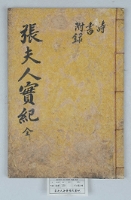 詩
書
附錄
張夫人實紀 全